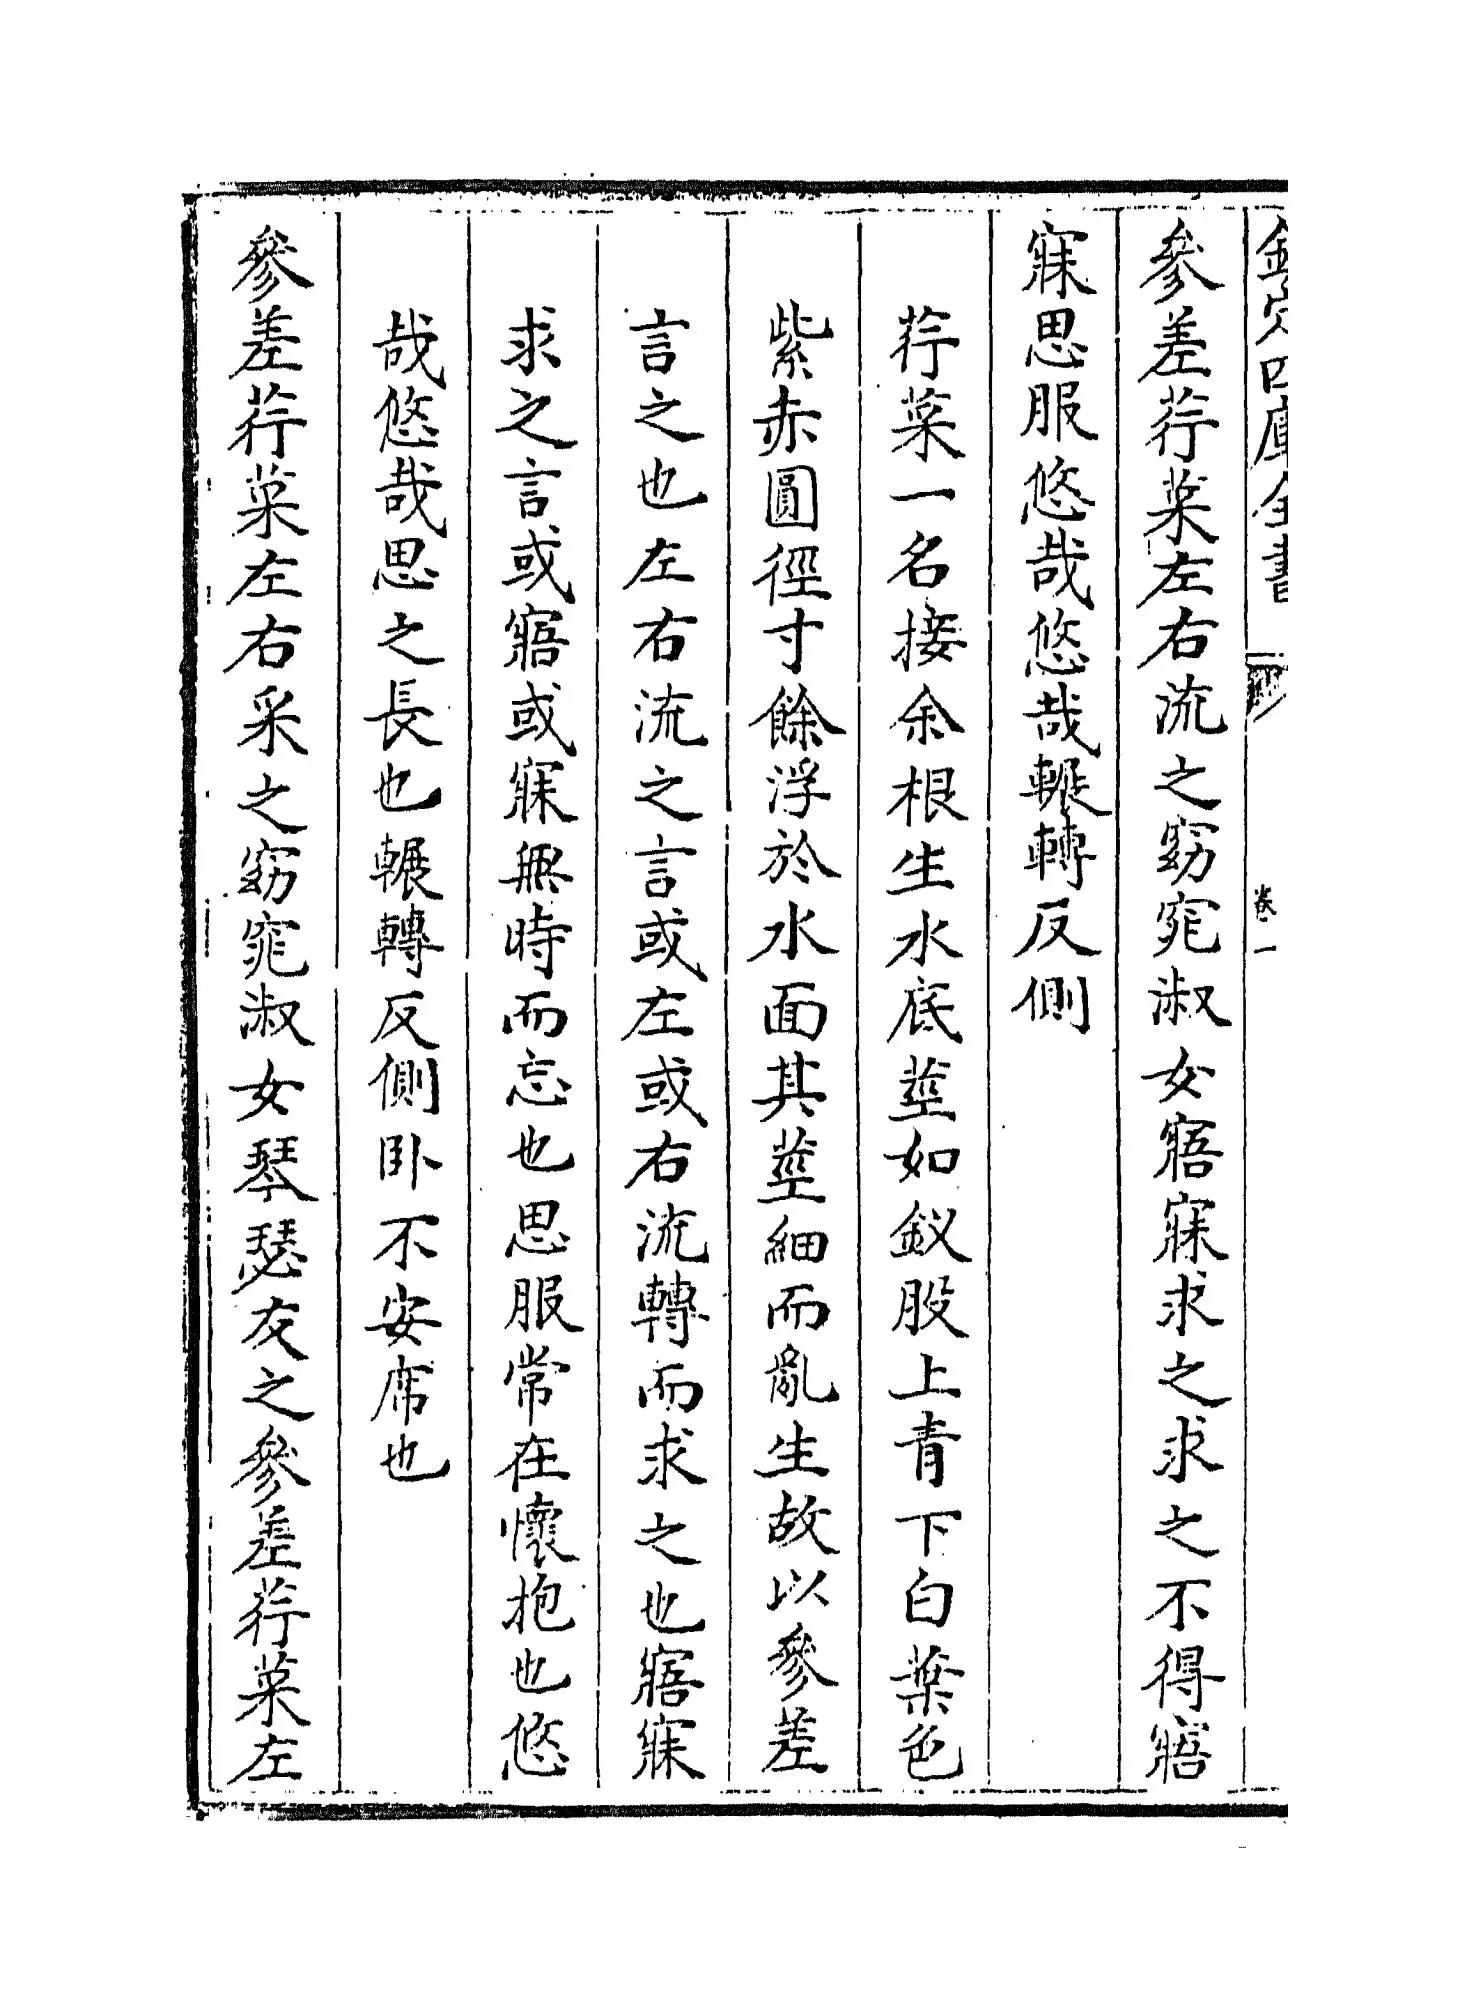 欽定四庫全書
卷一
參差荇菜左右流之窈窕淑女寤寐求之求之不得寤
寐思服悠哉悠哉輾轉反側
荇菜一名接余根生水底莖如釵股上青下白葉色
紫赤圓徑寸餘浮於水面其莖細而亂生故以參差
言之也左右流之言或左或右流轉而求之也寤寐
求之言或寤或寐無時而忘也思服常在懷抱也悠
哉悠哉思之長也輾轉反側卧不安席也
參差荇菜左右采之窈窕淑女琴瑟友之參差荇菜左